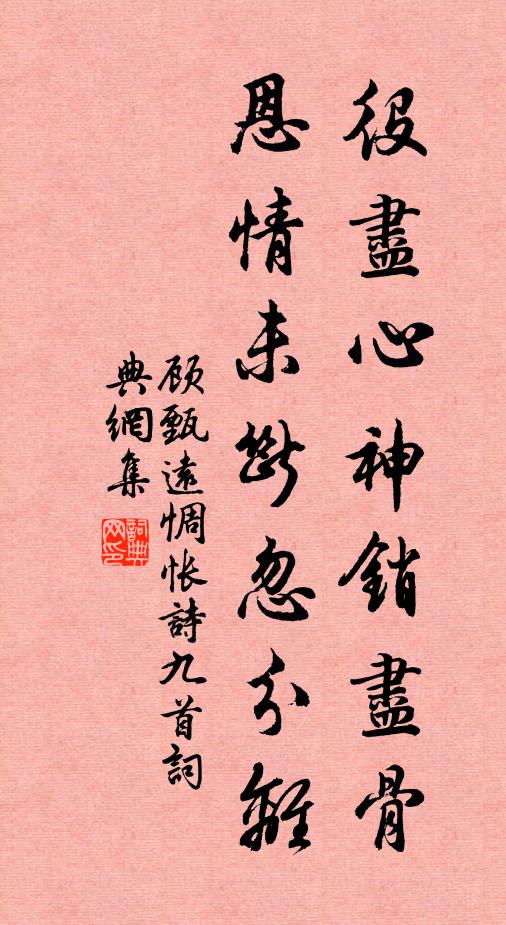 役盡心神銷盡骨
恩情未斷忽分離
顾甄遠惆怅詩九首詞
典網集
詞典网印